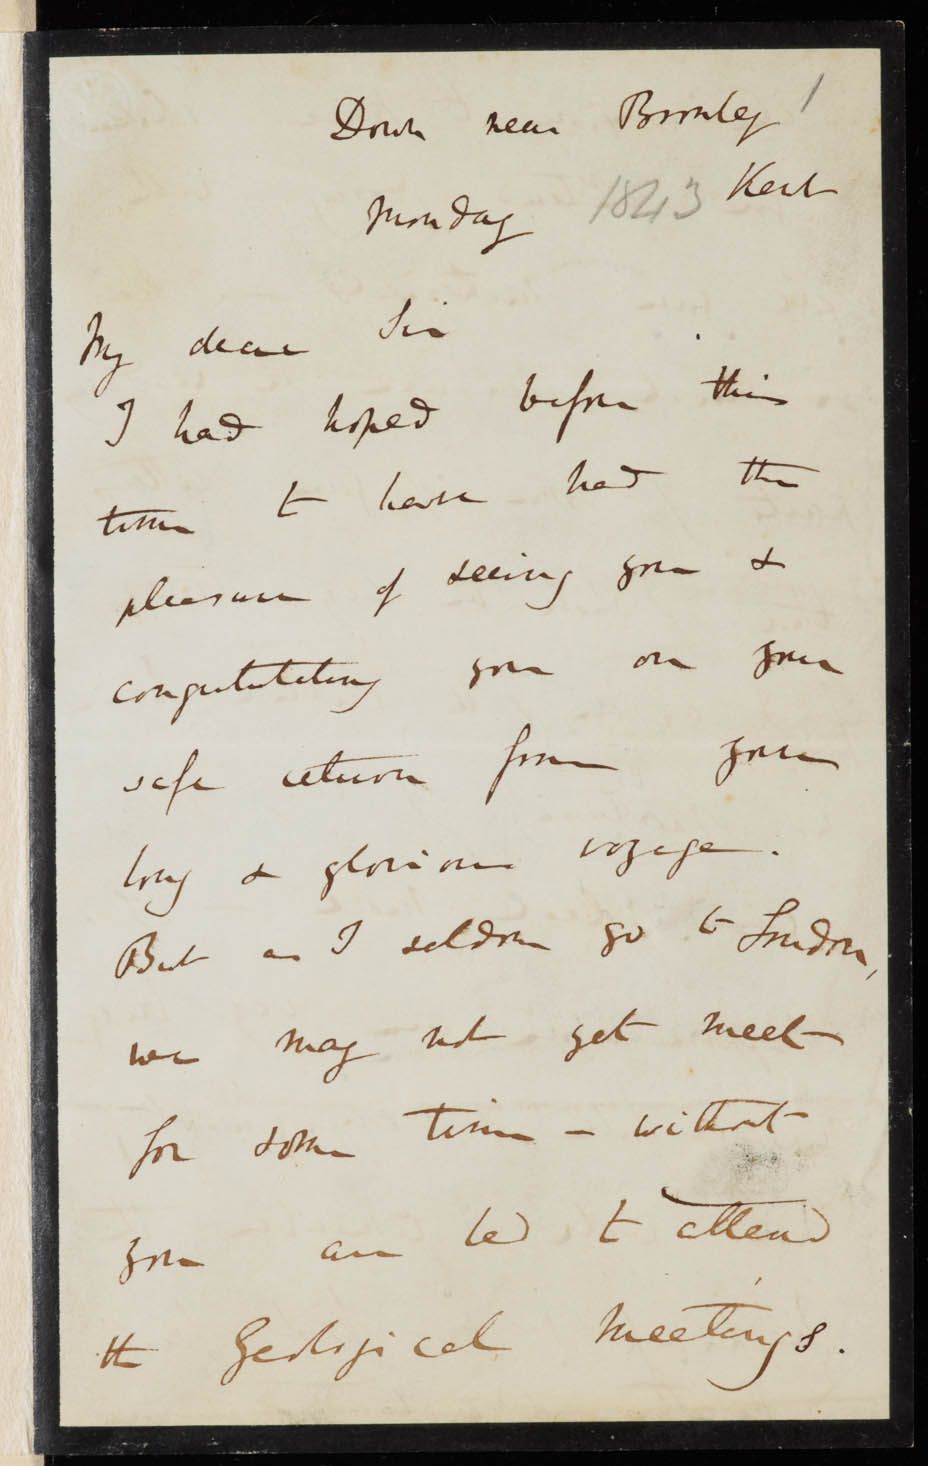 Down near Bromley 1
Kent
Monday 1843
My dear Sir
I had hoped before this
time to have had the
pleasure of seeing you &
congratulating you on your
safe return from your
long & glorious voyage.
But as I seldom go to London,
we may not yet meet
for some time – without
you are led to attend
the Geological Meetings.